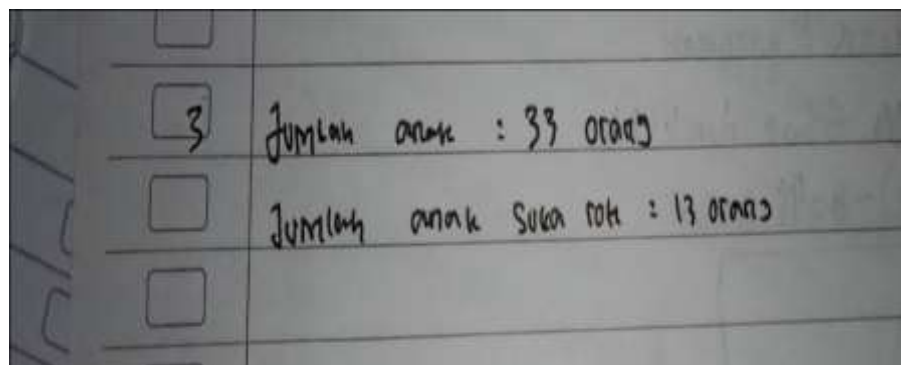 3 Jumlah anak : 33 orang
Jumlah anak suka rok : 13 orang